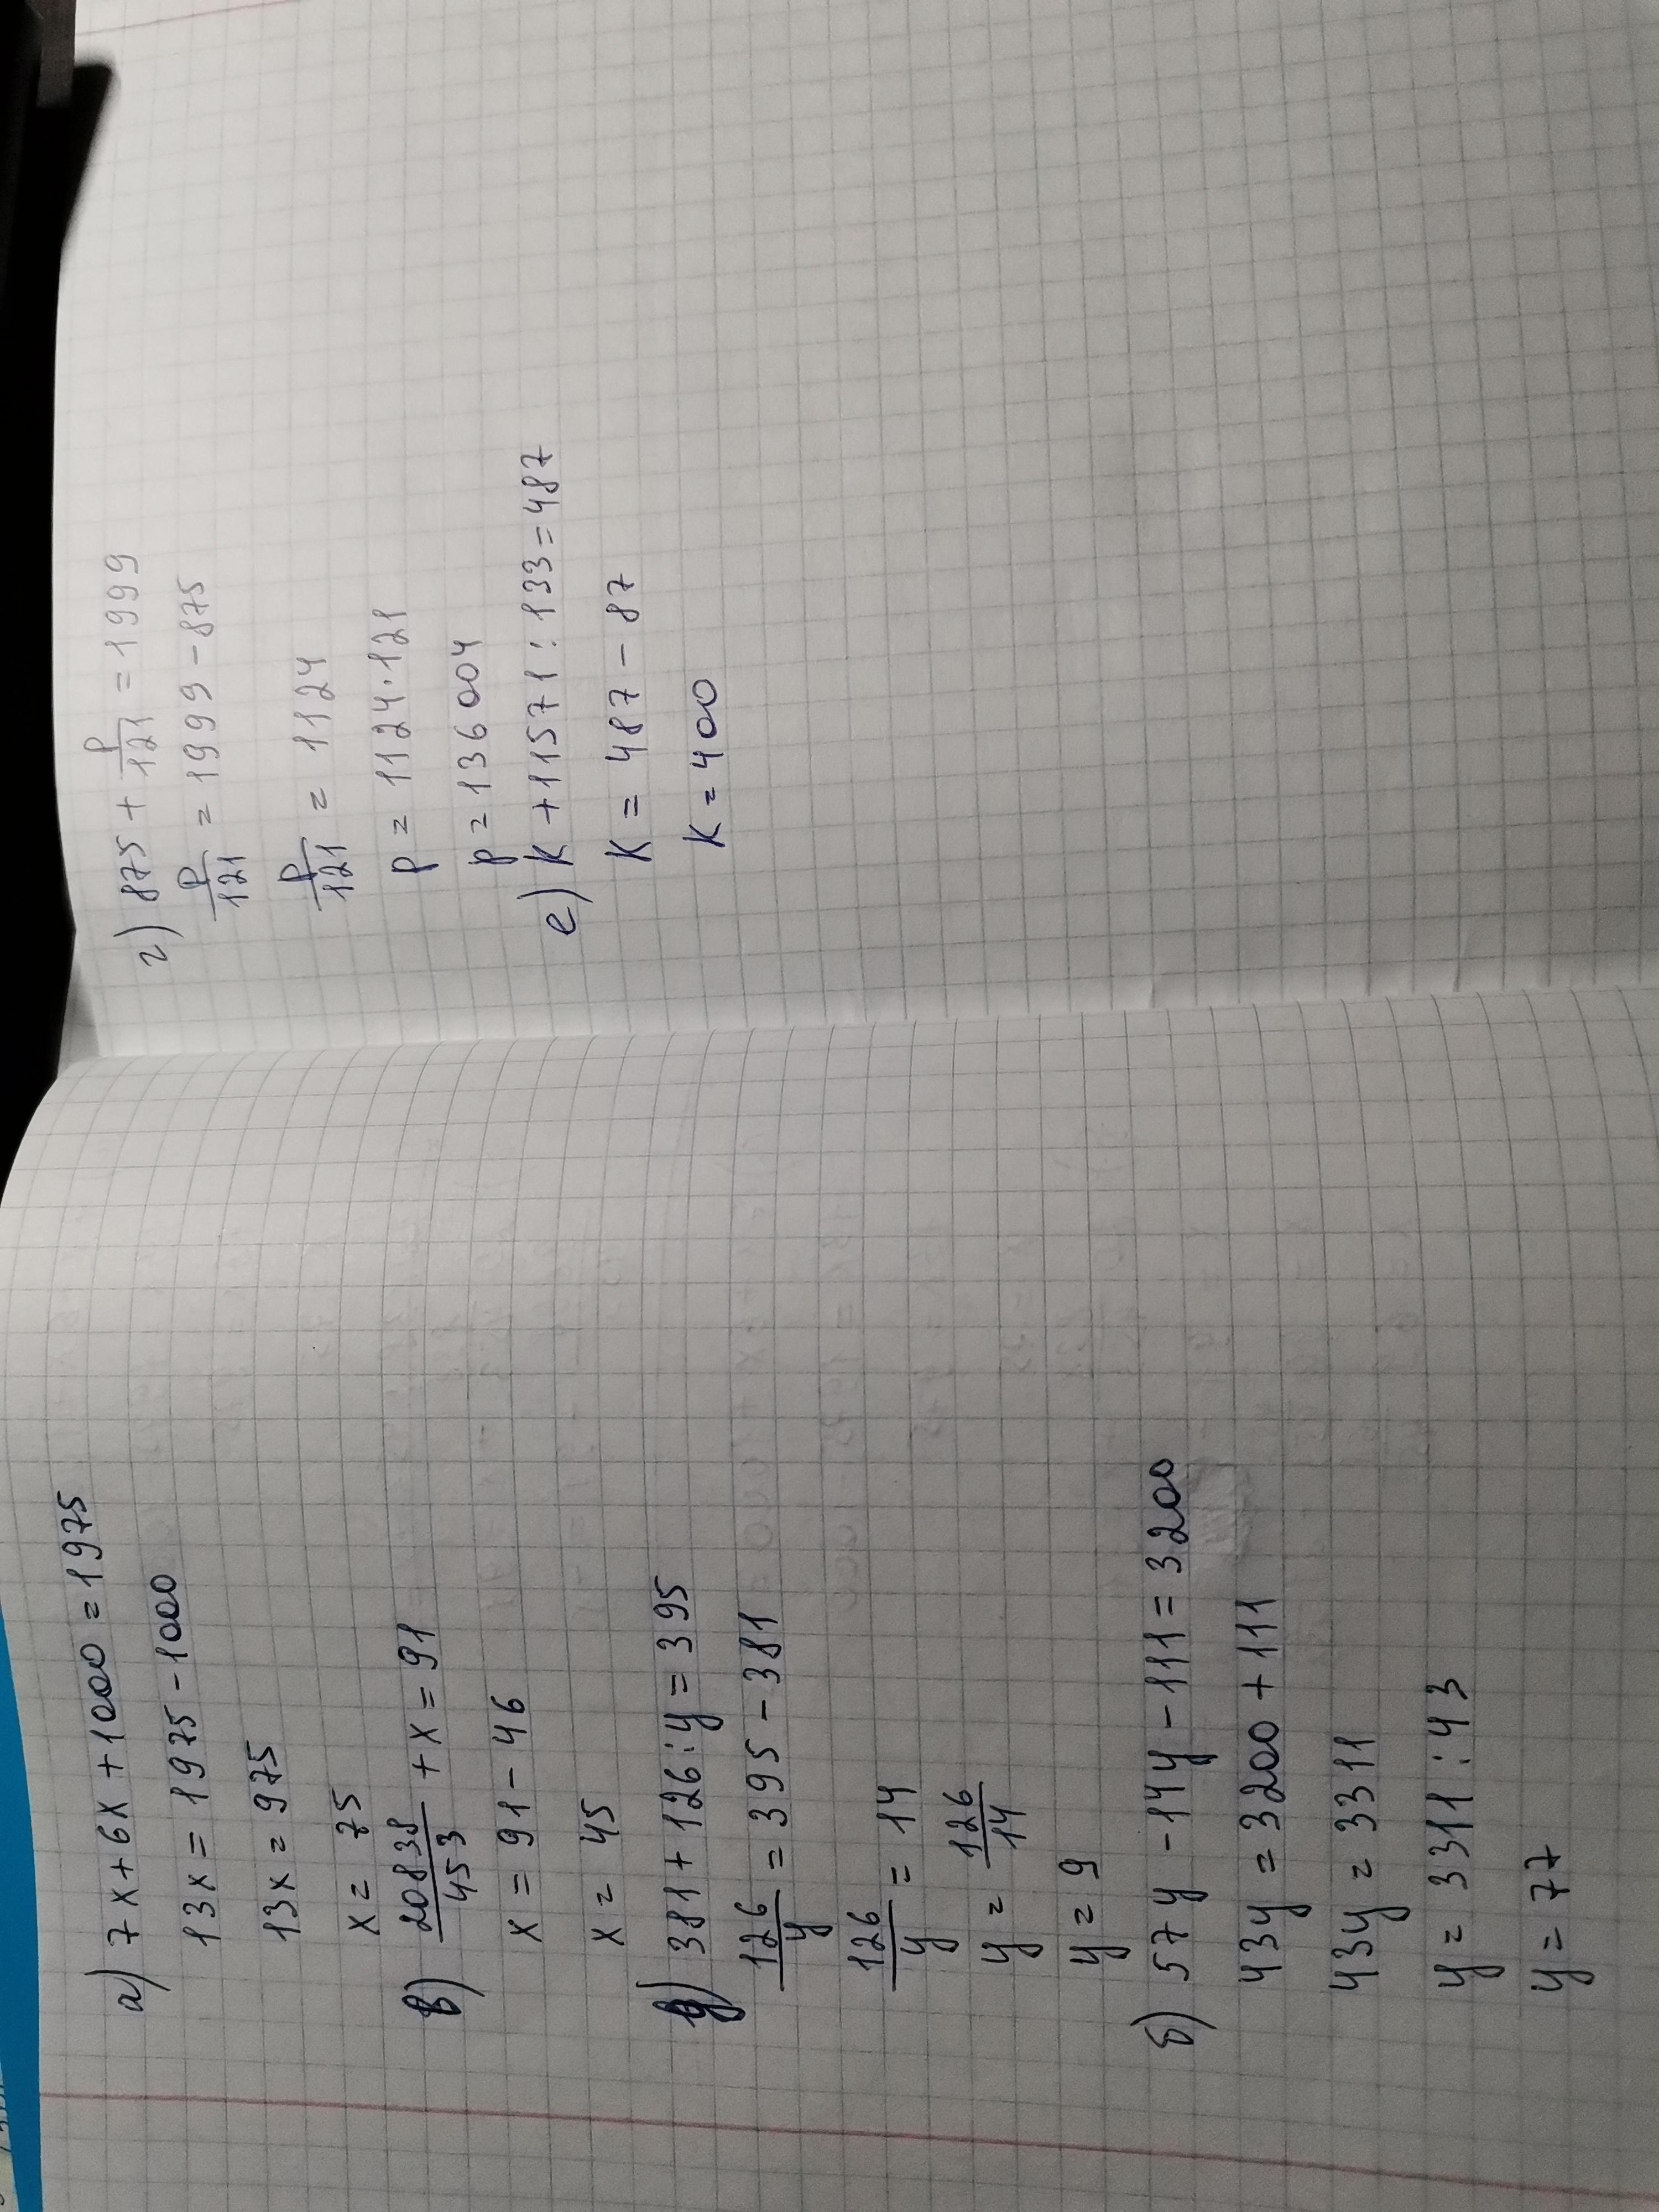 а) 7x+6x+1000=1975
13x=1975-1000
13x=975
x=75
в) 20838/453+x=91
x=91-46
x=45
д) 381+126:y=395
126/y=395-381
126/y=14
y=126/14
y=9
б) 57y-14y-111=3200
43y=3200+111
43y=3311
y=3311:43
y=77
г) 875+p/121=1999
p/121=1999-875
p/121=1124
p=1124·121
p=136004
е) K+11571:133=487
K=487-87
K=400